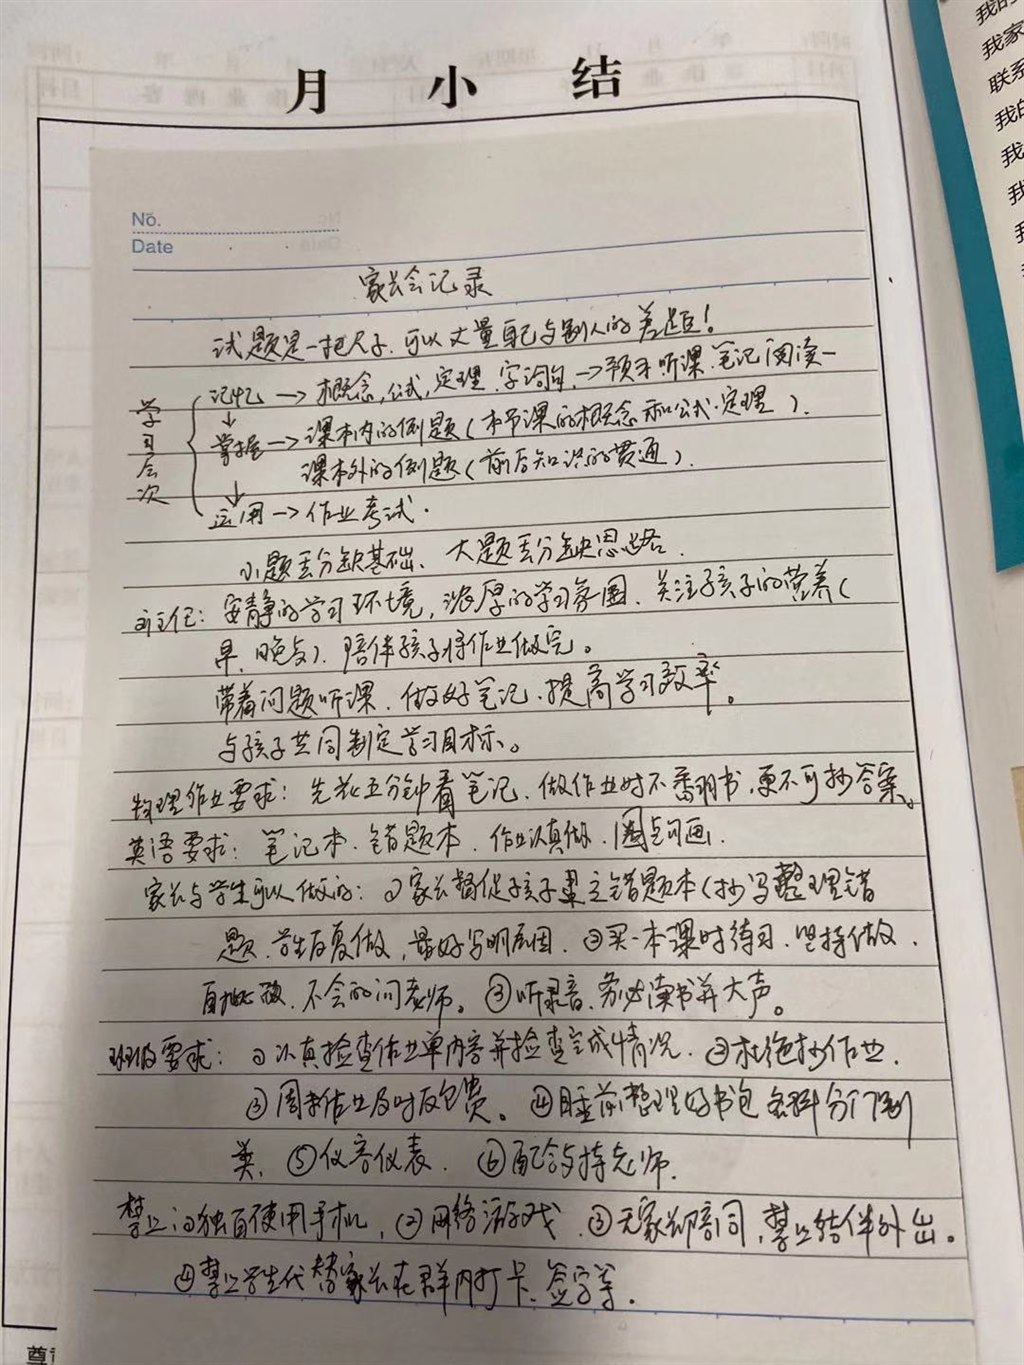 月小结
No.
Date
家长会记录
试题是一把尺子,可以丈量自己与别人的差距!
学习层次
记忆→概念,公式,定理,字词句,→预习听课、笔记阅读一
掌握→课本内的例题(本节课的概念和公式·定理).
课本外的例题(前后知识的贯通).
运用→作业考试.
小题丢分缺基础、大题丢分缺思路.
班主任:安静的学习环境,浓厚的学习氛围、关注孩子的营养(
早、晚与)、陪伴孩子将作业做完。
带着问题听课、做好笔记、提高学习效率。
与孩子共同制定学习目标。
物理作业要求:先花五分钟看笔记、做作业时不翻书,更不可抄答案。
英语要求:笔记本、错题本、作业认真做、圈点勾画.
家长与学生可以做的:①家长督促孩子建立错题本(抄写整理错
题、学生反复做,最好写明原因、②买一本课时练习、坚持做,
自批改、不会的问老师。③听录音、务必读书并大声。
班级要求:①认真检查作业单内容并检查完成情况、②杜绝抄作业.
③周末作业及时反馈。④睡前整理好书包各科分门别
类、⑤仪容仪表. ⑥配合支持老师.
禁止①独自使用手机,②网络游戏.③无家长陪同,禁止结伴外出。
④禁止学生代替家长在群内打卡、签字等.
我家
联系
我的
我
我
我
尊